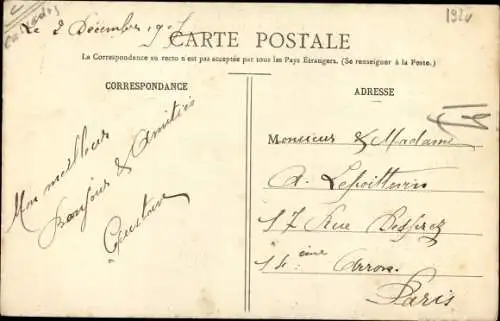 Calvados
Le 2 Décembre 1907
CARTE POSTALE
La Correspondance au recto n'est pas acceptée par tous les Pays Etrangers. (Se renseigner à la Poste.)
CORRESPONDANCE
Mon meilleur
Bonjour & Amitiés
Gustave
ADRESSE
Monsieur & Madame
A. Lepoittevin
17 Rue
14 ème Arron.
Paris